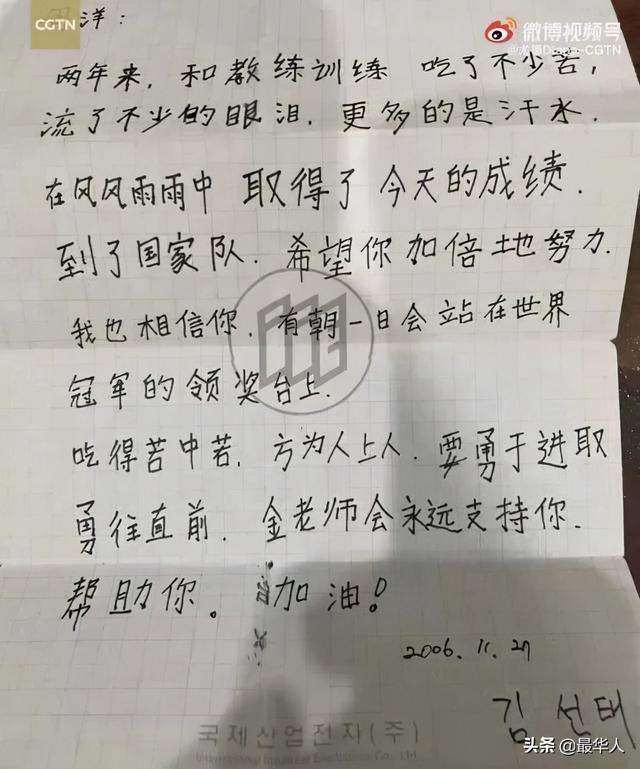 CGTN
微博视频号
洋:
两年来，和教练训练 吃了不少苦，
流了不少的眼泪．更多的是汗水．
在风风雨雨中 取得了 今天的成绩．
到了国家队．希望你加倍地努力．
我也相信你．有朝一日会站在世界
冠军的领奖台上．
吃得苦中苦．方为人上人．要勇于进取
勇往直前．金老师会永远支持你．
帮助你。加油！
2006.11.27
김 선태
국제산업전자(주)
头条 @最华人